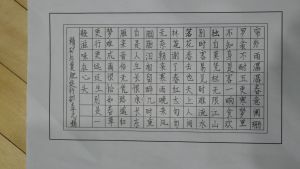 帘外雨潺潺春意阑珊
罗衾不耐五更寒梦里
不知身是客一晌贪欢
独自莫凭栏无限江山
别时容易见时难流水
落花春去也天上人间
林花谢了春红太匆匆
无奈朝来寒雨晚来风
胭脂泪相留醉几时重
自是人生长恨水长东
雁来音信无凭路遥归
梦难成离恨恰如春草
更行更远还生别是一
般滋味在心头